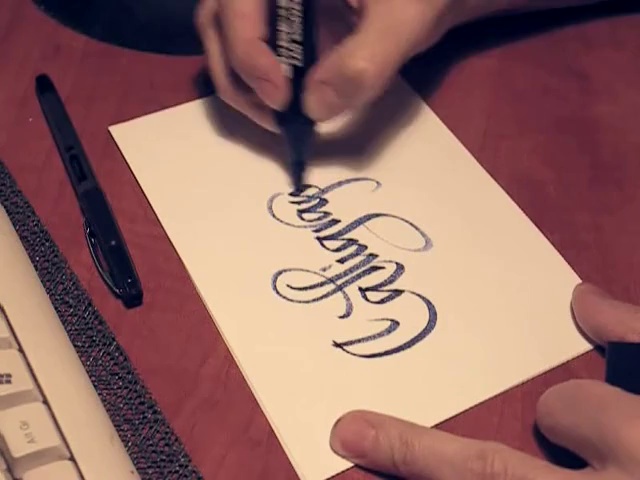 Calligraph
Alt Gr